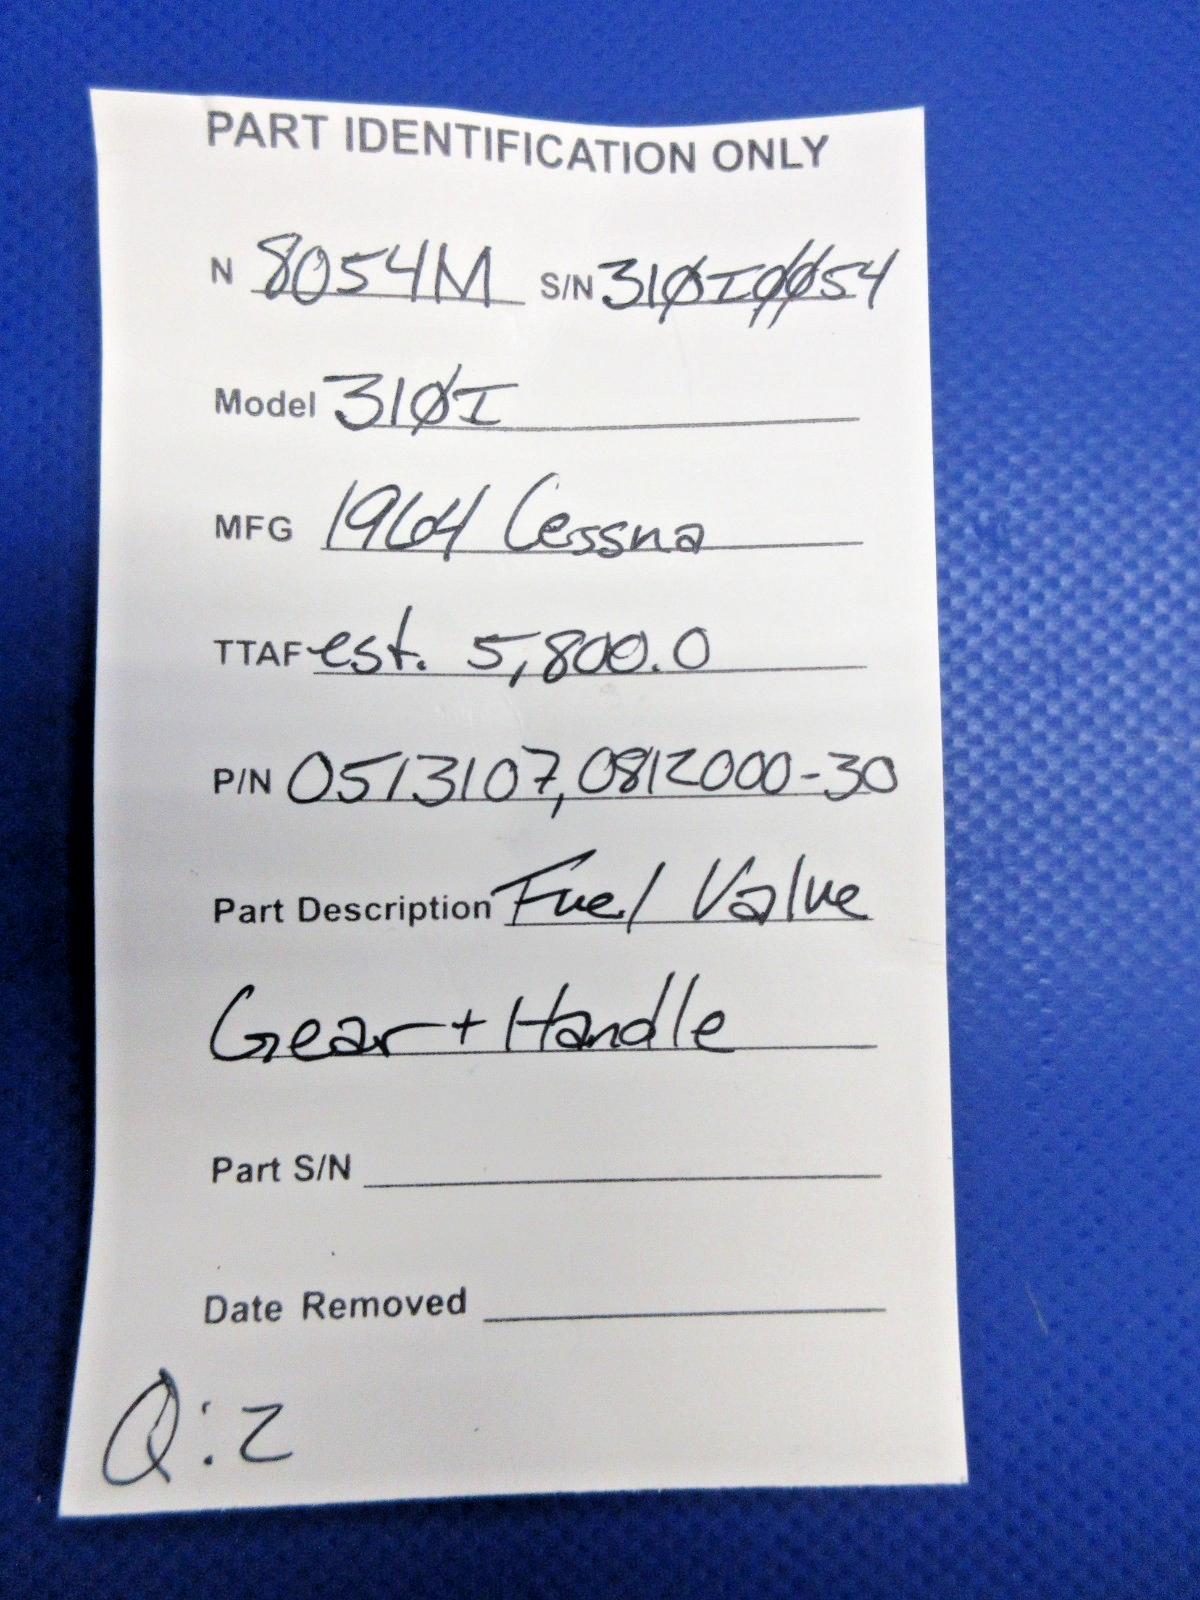 PART IDENTIFICATION ONLY
N 8054M S/N 310I0054
Model 310I
MFG 1964 Cessna
TTAF est. 5,800.0
P/N 0513107, 0812000-30
Part Description Fuel Valve
Gear + Handle
Part S/N
Date Removed
Q: 2